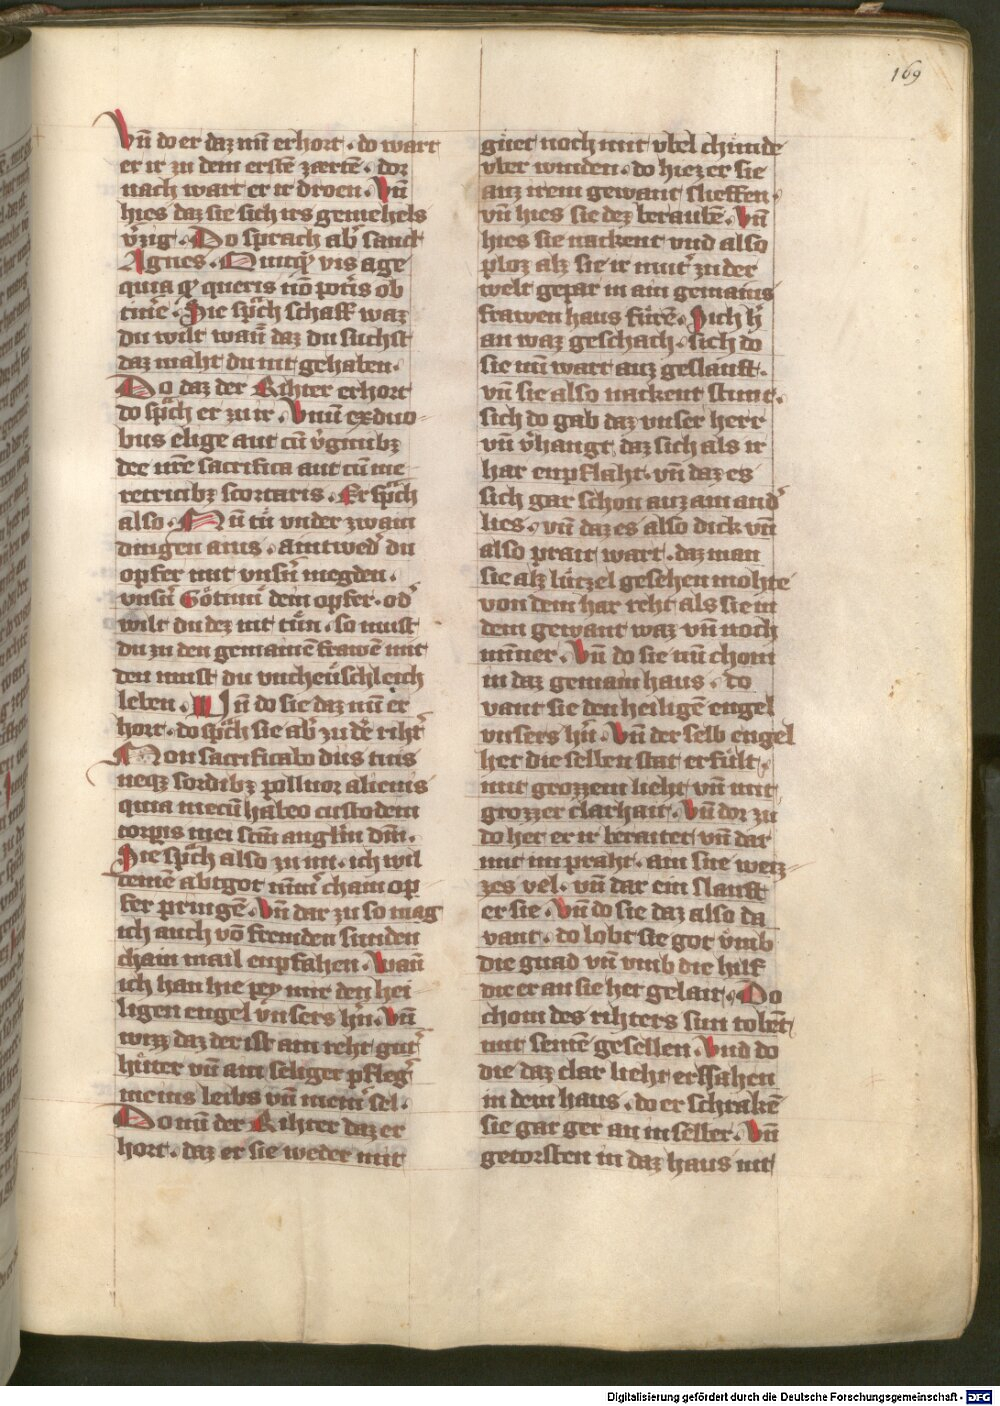 169
Vn̄ do er daz nu̅ erhort · do wart
er ir zu dem erstē zærtē · dor
nach wart er ir droen · Vn̄
hies daz sie sich irs gemehels
v̓zig · Do sprach ab̓ sanct
Agnes · Quitq̓ vis age
quia q̓ queris nō pot̓is ob
tin̓e · Sie sp̃ch schaff waz
du wilt wan̄ daz du suchst
daz maht du nit gehaben ·
Do daz der Rihter erhort
do sp̃ch er zu ir · Vnu̅ ex duo
bus elige aut cu̅ v̓ginibꝫ
dee n̄re sacrifica aut cu̅ me
retricibꝫ scortaris · Er sp̃ch
also · Nu̅ tu̇ vnder zwain
dingen ains · aintwed̓ du
opfer mit vnsn̓ megden ·
vnsn̓ Gȯtinn̓ dem opfer · od̓
wilt du dez nit tu̇n · so must
du zu den gemainē frawē mit
den must du vncheu̇schleich
leben · Vn̄ do sie daz nu̅ er
hort · do sp̃ch sie ab̓ zu dē riht̓
Non sacrificabo diis tuis
neqꝫ sordibꝫ polluor alienis
quia mecu̅ habeo custodem
corp̲is mei scm̄ angl̄m dm̄ ·
Sie sp̃ch also zu im · ich wil
deinē abtgot nim̄̓ chain op
fer pringē · Vn̄ dar zu so mag
ich auch vō fremden sunden
chain mail enpfahen · Wan̄
ich han hie pey mir den hei
ligen engel vnsers hn̓ · Vn̄
wizz daz der ist ain reht gut̓
hu̇ter vn̄ ain seliger pfleg̓
meins leibs vn̄ mein̓ sel ·
Do nu̅ der Rihter daz er
hort · daz er sie weder mit
guet noch mit vbel chunde
vber winden · do hiez er sie
auz irem gewant slieffen ·
vn̄ hies sie dez beraubē · Vn̄
hies sie nackent vnd also
ploz alz sie ir mut̓ zu der
welt gepar in ain gemains
frawen haus fu̇rē · Sich h̓
an waz geschach · sich do
sie nu̅ wart auz geslauft ·
vn̄ sie also nackent stunt ·
sich do gab daz vnser herr
vn̄ v̓hangt daz sich als ir
har enpflaht · vn̄ daz es
sich gar schon auz ain and̓
lies · vn̄ daz es also dick vn̄
also prait wart · daz man
sie alz lu̇tzel gesehen mohte
von dem har reht als sie in
dem gewant waz vn̄ noch
minner · Vn̄ do sie nu̅ chom
in daz gemain haus · do
vant sie den heiligē engel
vnsers hn̓ · Vn̄ der selb engel
het die selben stat erfu̇lt ·
mit grozzem lieht vn̄ mit
grozzer clarhait · Vn̄ dor zu
do het er ir beraitet vn̄ dar
mit im praht · ain sne weiz
zes vel · vn̄ dar ein slauft
er sie · Vn̄ do sie daz also da
vant · do lobt sie got v̇mb
die gnad vn̄ vmb die hilf
die er an sie het gelait · Do
chom des rihters sun tobēt
mit seinē gesellen · Vnd do
die daz clar lieht ersahen
in dem haus · do erschrakē
sie gar ser an in selber · Vn̄
getorsten in daz haus nit
Digitalisierung gefördert durch die Deutsche Forschungsgemeinschaft - DFG